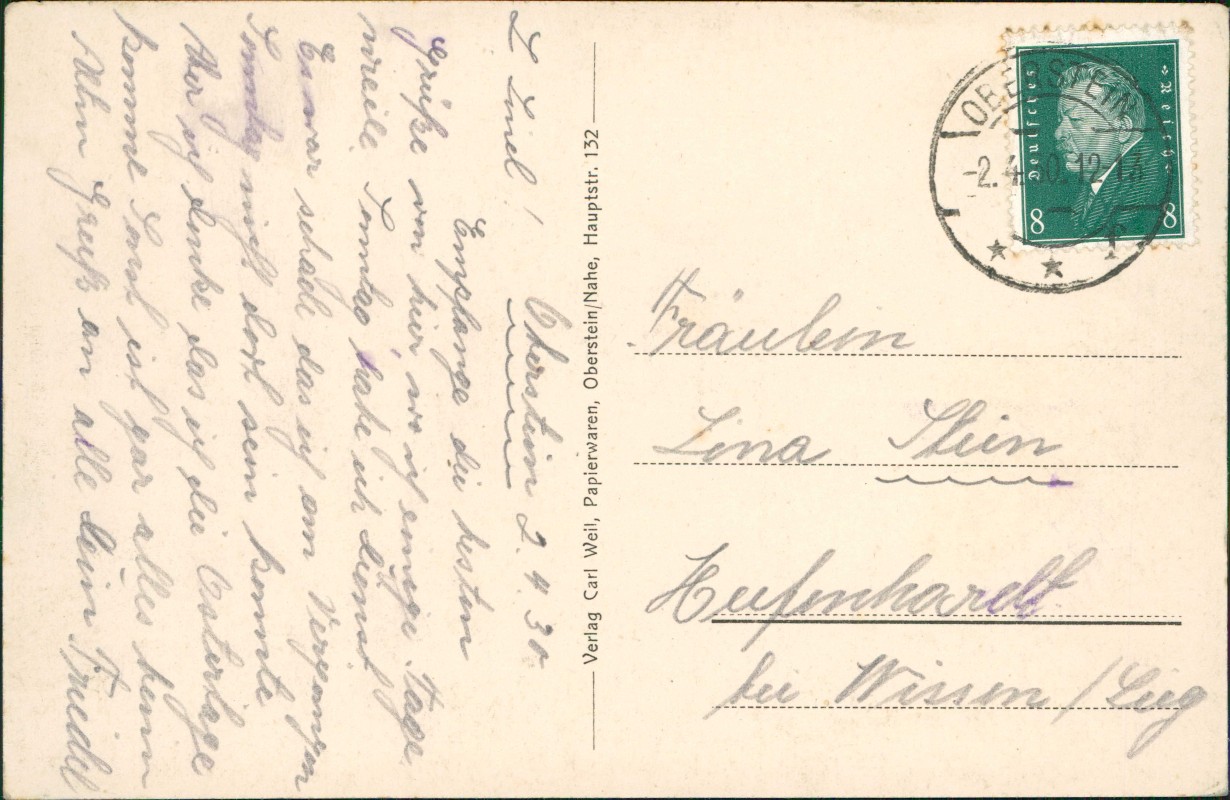 Oberstein 2.4.30
L Linel!
Empfange die besten
Grüße von hier, wo ich einige Tage
weile. Sonntag habe ich dienst
Es war schade das ich am Vergangen
Sonntag nicht dort sein konnte
Aber ich denke das ich die Ostertage
komme Sonst ist gar alles beim
Alten Grüß an alle dein Friedel
Verlag Carl Weil, Papierwaren, Oberstein/Nahe, Hauptstr. 132
Deutsches Reich
8 8
OBERSTEIN
-2.4.30.12-1
Fräulein
Lina Stein
Hufenhardt
bei Wissen / Sieg